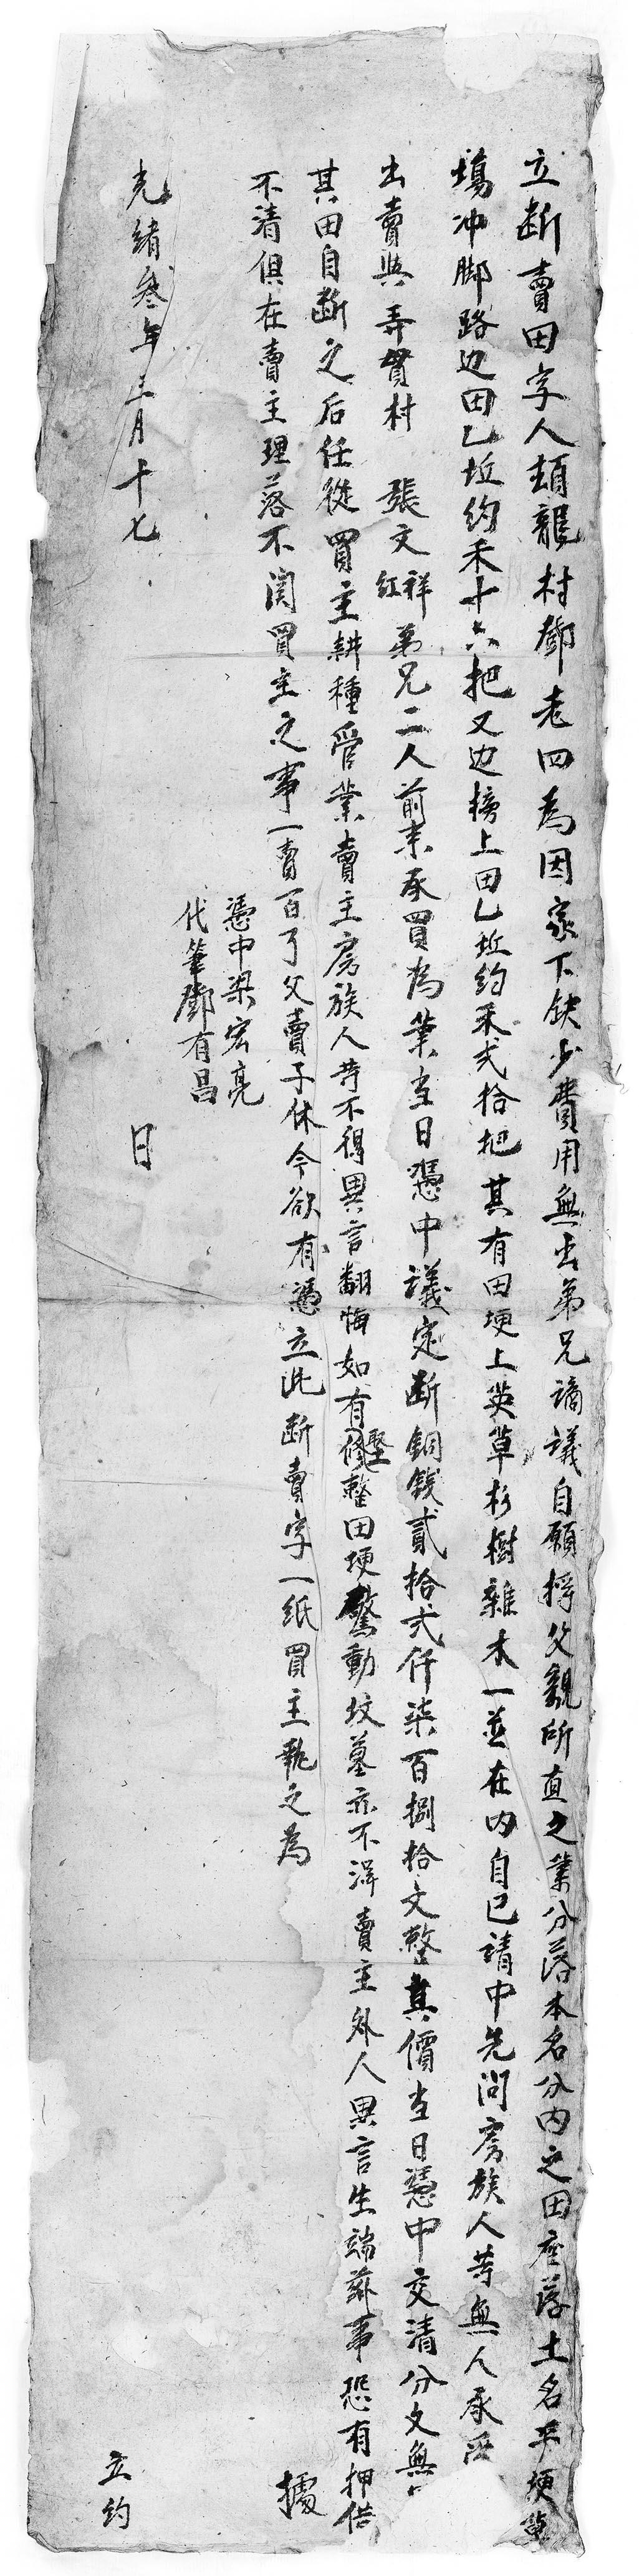 立断賣田字人頭龍村鄧老四為因家下缺少費用無出弟兄謫議自愿將父親所直之業分落本名分内之田座落土名平埂草
塲冲脚路边田乙坵約禾十六把又边榜上田乙坵約禾弍拾把其有田埂上英草杉樹雜木一並在内自己請中先问房族人等無人承
出賣與弄貫村張文祥紅弟兄二人前来承買為業当日憑中議定断銅錢貳拾弍仟柒百捌拾文整其價当日憑中交清分文無
其田自断之后任從買主耕種管業賣主房族人等不得異言翻悔如有修整田埂驚動坟墓亦不淂賣主外人異言生端兹事恐有押借
不清俱在賣主理落不関買主之事一賣百了父賣子休今欲有憑立此断賣字一紙買主執之為據
憑中梁宏亮
代筆鄧有昌
光緒叁年三月十七日立約